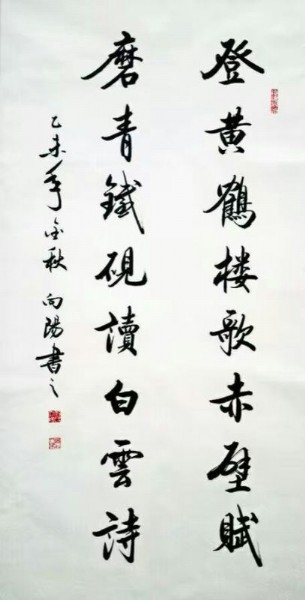 登黄鶴楼歌赤壁賦
磨青鐵硯讀白雲詩
乙未年金秋向陽書之